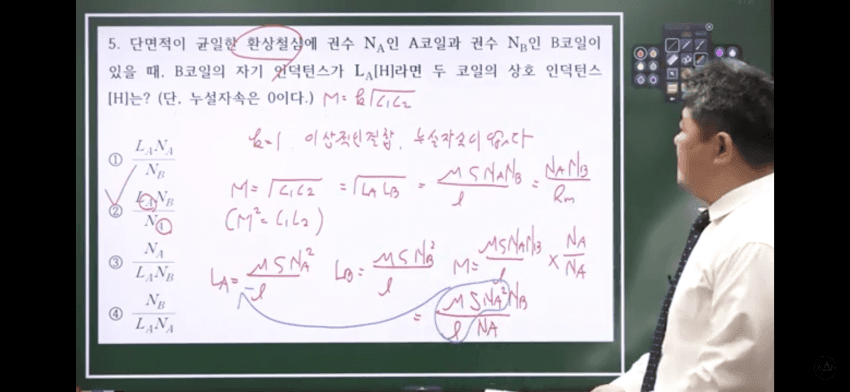 5. 단면적이 균일한 환상철심에 권수 N_A인 A코일과 권수 N_B인 B코일이
있을 때, B코일의 자기 인덕턴스가 L_A[H]라면 두 코일의 상호 인덕턴스
[H]는? (단, 누설자속은 0이다.) M = k√L₁L₂
k=1, 이상적인 결합, 누설자속이 없다
① L_A N_A / N_B
② L_A N_B / N_A
③ N_A / L_A N_B
④ N_B / L_A N_A
M = √L₁L₂ = √L_A L_B = μS N_A N_B / l = N_A N_B / R_m
(M² = L₁L₂)
L_A = μS N_A² / l
L_B = μS N_B² / l
M = μS N_A N_B / l × N_A / N_A
= μS N_A² N_B / l N_A